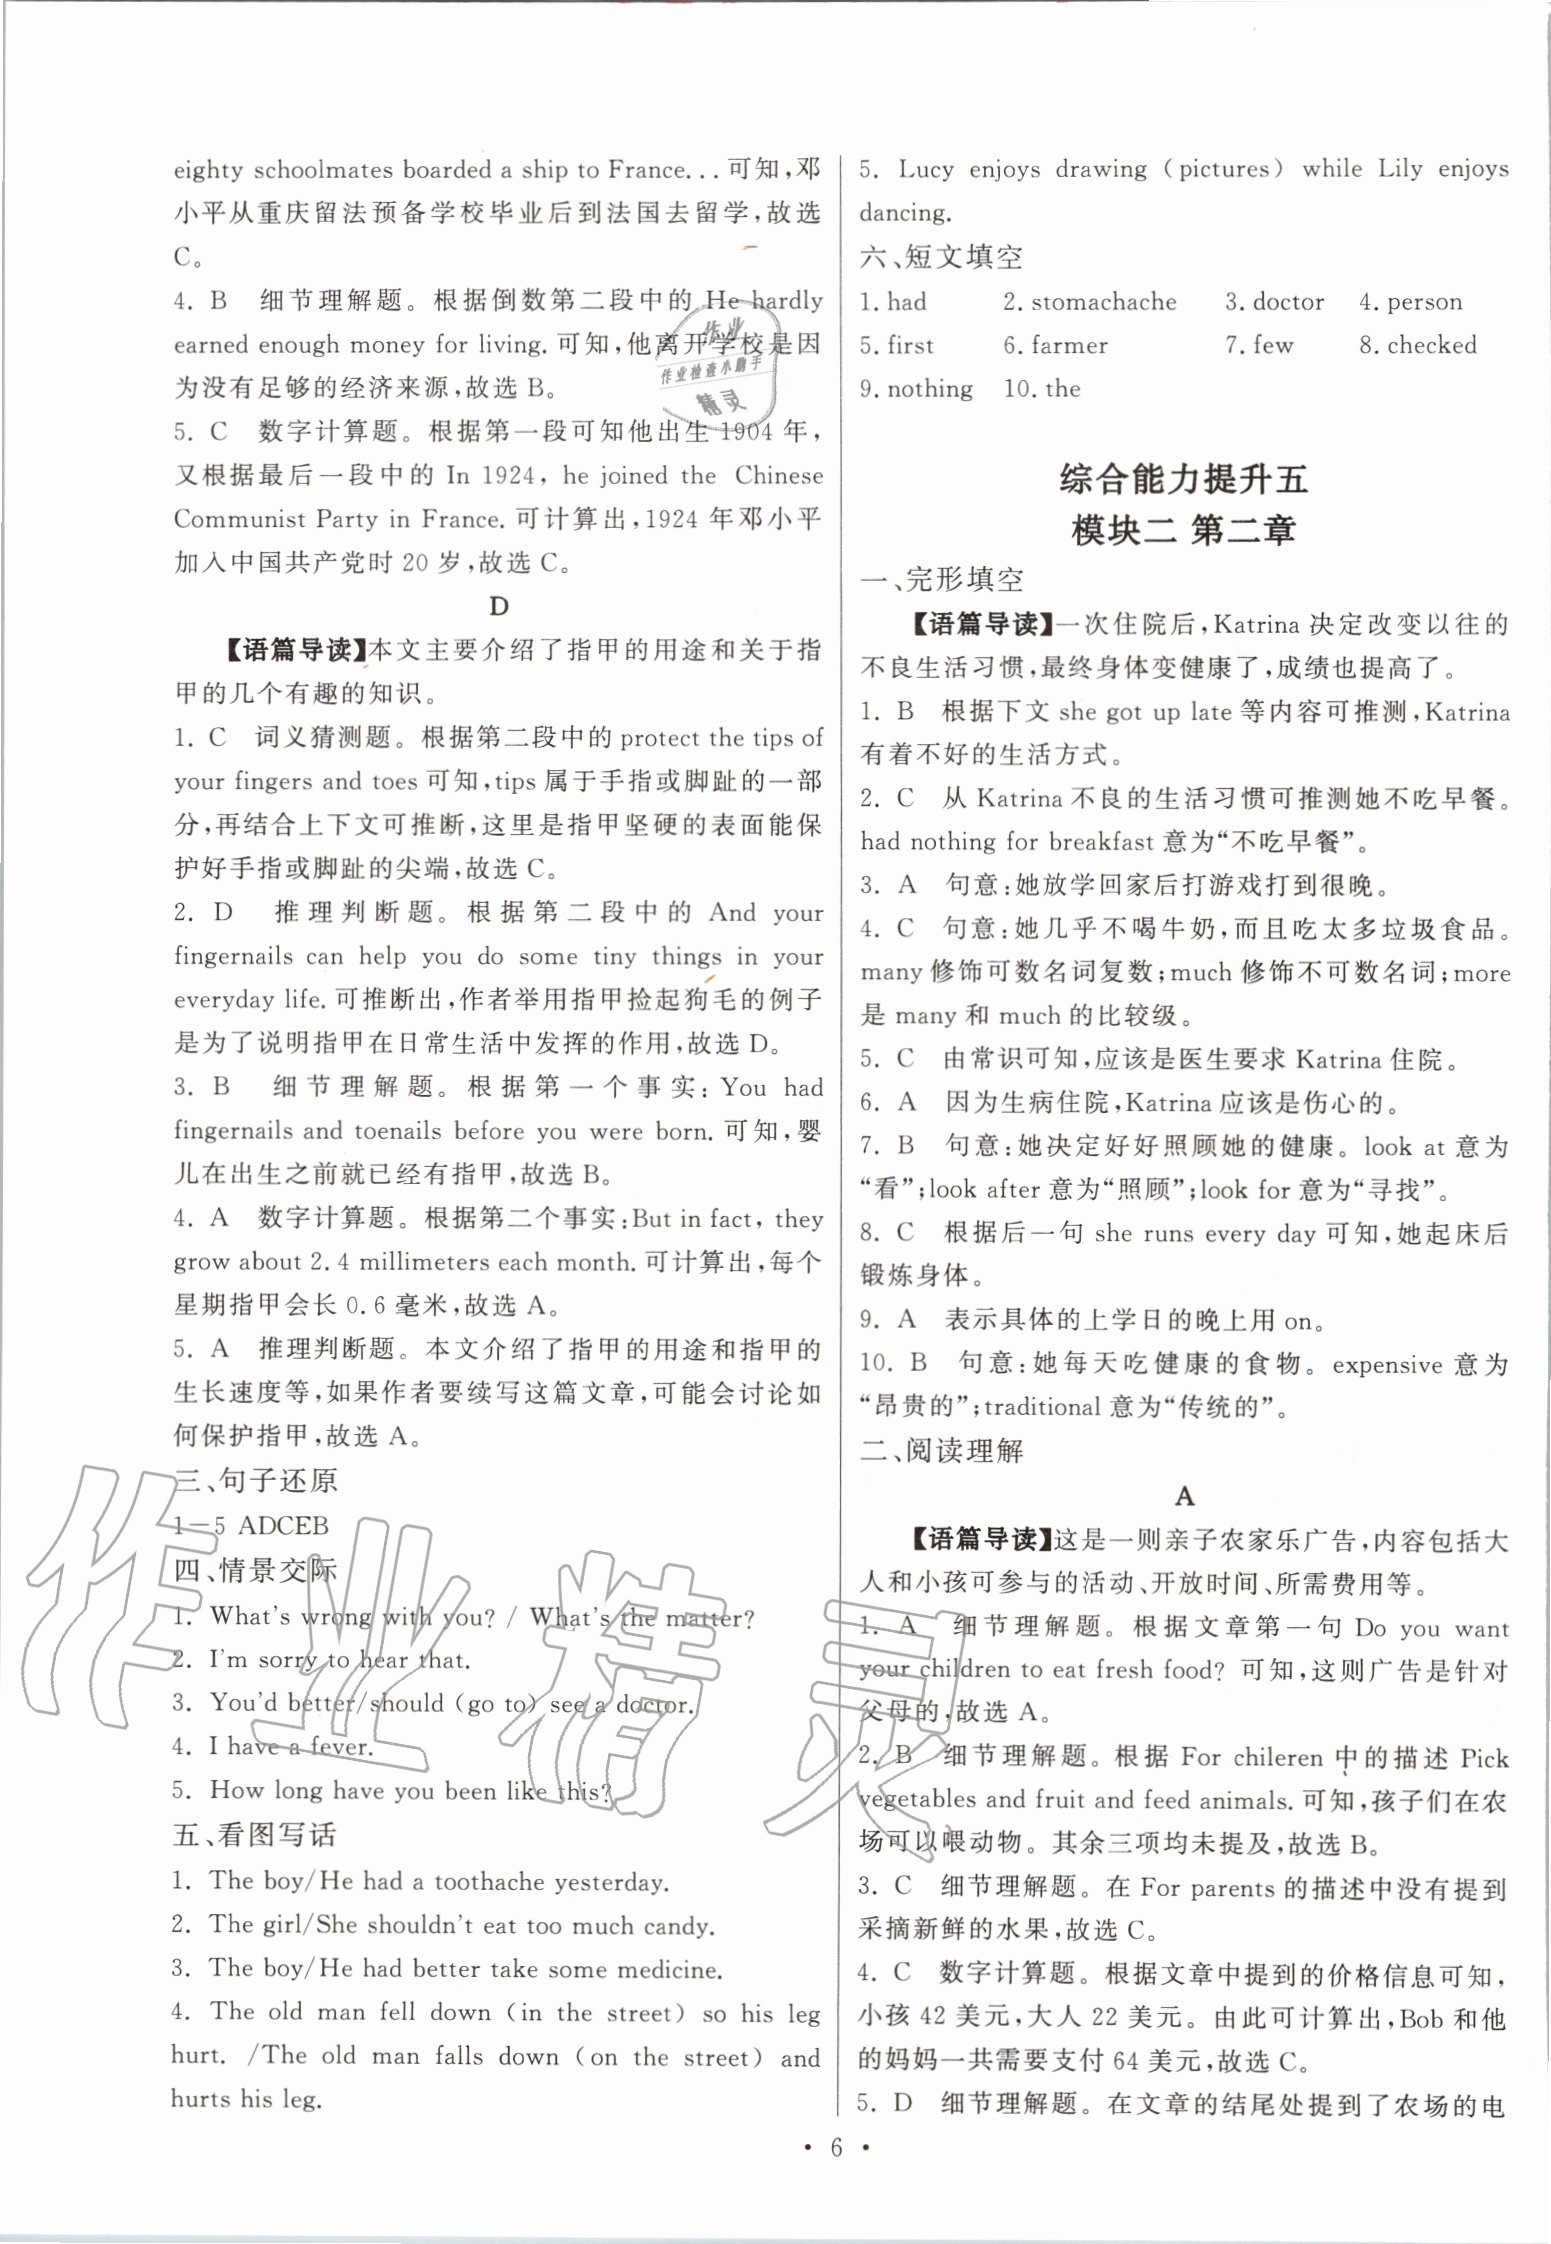 eighty schoolmates boarded a ship to France...可知,邓
小平从重庆留法预备学校毕业后到法国去留学,故选
C。
4. B 细节理解题。根据倒数第二段中的 He hardly
earned enough money for living.可知,他离开学校是因
为没有足够的经济来源,故选 B。
5. C 数字计算题。根据第一段可知他出生 1904 年,
又根据最后一段中的 In 1924, he joined the Chinese
Communist Party in France.可计算出,1924 年邓小平
加入中国共产党时 20 岁,故选 C。
D
【语篇导读】本文主要介绍了指甲的用途和关于指
甲的几个有趣的知识。
1. C 词义猜测题。根据第二段中的 protect the tips of
your fingers and toes 可知,tips 属于手指或脚趾的一部
分,再结合上下文可推断,这里是指甲坚硬的表面能保
护好手指或脚趾的尖端,故选 C。
2. D 推理判断题。根据第二段中的 And your
fingernails can help you do some tiny things in your
everyday life.可推断出,作者举用指甲捡起狗毛的例子
是为了说明指甲在日常生活中发挥的作用,故选 D。
3. B 细节理解题。根据第一个事实: You had
fingernails and toenails before you were born.可知,婴
儿在出生之前就已经有指甲,故选 B。
4. A 数字计算题。根据第二个事实:But in fact, they
grow about 2.4 millimeters each month.可计算出,每个
星期指甲会长 0.6 毫米,故选 A。
5. A 推理判断题。本文介绍了指甲的用途和指甲的
生长速度等,如果作者要续写这篇文章,可能会讨论如
何保护指甲,故选 A。
三、句子还原
1—5 ADCEB
四、情景交际
1. What's wrong with you? / What's the matter?
2. I'm sorry to hear that.
3. You'd better/should (go to) see a doctor.
4. I have a fever.
5. How long have you been like this?
五、看图写话
1. The boy/He had a toothache yesterday.
2. The girl/She shouldn't eat too much candy.
3. The boy/He had better take some medicine.
4. The old man fell down (in the street) so his leg
hurt. /The old man falls down (on the street) and
hurts his leg.
5. Lucy enjoys drawing (pictures) while Lily enjoys
dancing.
六、短文填空
1. had 2. stomachache 3. doctor 4. person
5. first 6. farmer 7. few 8. checked
9. nothing 10. the
综合能力提升五
模块二 第二章
一、完形填空
【语篇导读】一次住院后,Katrina 决定改变以往的
不良生活习惯,最终身体变健康了,成绩也提高了。
1. B 根据下文 she got up late 等内容可推测,Katrina
有着不好的生活方式。
2. C 从 Katrina 不良的生活习惯可推测她不吃早餐。
had nothing for breakfast 意为“不吃早餐”。
3. A 句意:她放学回家后打游戏打到很晚。
4. C 句意:她几乎不喝牛奶,而且吃太多垃圾食品。
many 修饰可数名词复数;much 修饰不可数名词;more
是 many 和 much 的比较级。
5. C 由常识可知,应该是医生要求 Katrina 住院。
6. A 因为生病住院,Katrina 应该是伤心的。
7. B 句意:她决定好好照顾她的健康。look at 意为
“看”;look after 意为“照顾”;look for 意为“寻找”。
8. C 根据后一句 she runs every day 可知,她起床后
锻炼身体。
9. A 表示具体的上学日的晚上用 on。
10. B 句意:她每天吃健康的食物。expensive 意为
“昂贵的”;traditional 意为“传统的”。
二、阅读理解
A
【语篇导读】这是一则亲子农家乐广告,内容包括大
人和小孩可参与的活动、开放时间、所需费用等。
1. A 细节理解题。根据文章第一句 Do you want
your children to eat fresh food? 可知,这则广告是针对
父母的,故选 A。
2. B 细节理解题。根据 For chileren 中的描述 Pick
vegetables and fruit and feed animals.可知,孩子们在农
场可以喂动物。其余三项均未提及,故选 B。
3. C 细节理解题。在 For parents 的描述中没有提到
采摘新鲜的水果,故选 C。
4. C 数字计算题。根据文章中提到的价格信息可知,
小孩 42 美元,大人 22 美元。由此可计算出,Bob 和他
的妈妈一共需要支付 64 美元,故选 C。
5. D 细节理解题。在文章的结尾处提到了农场的电
• 6 •
作业
作业检查小助手
精灵
作业精灵